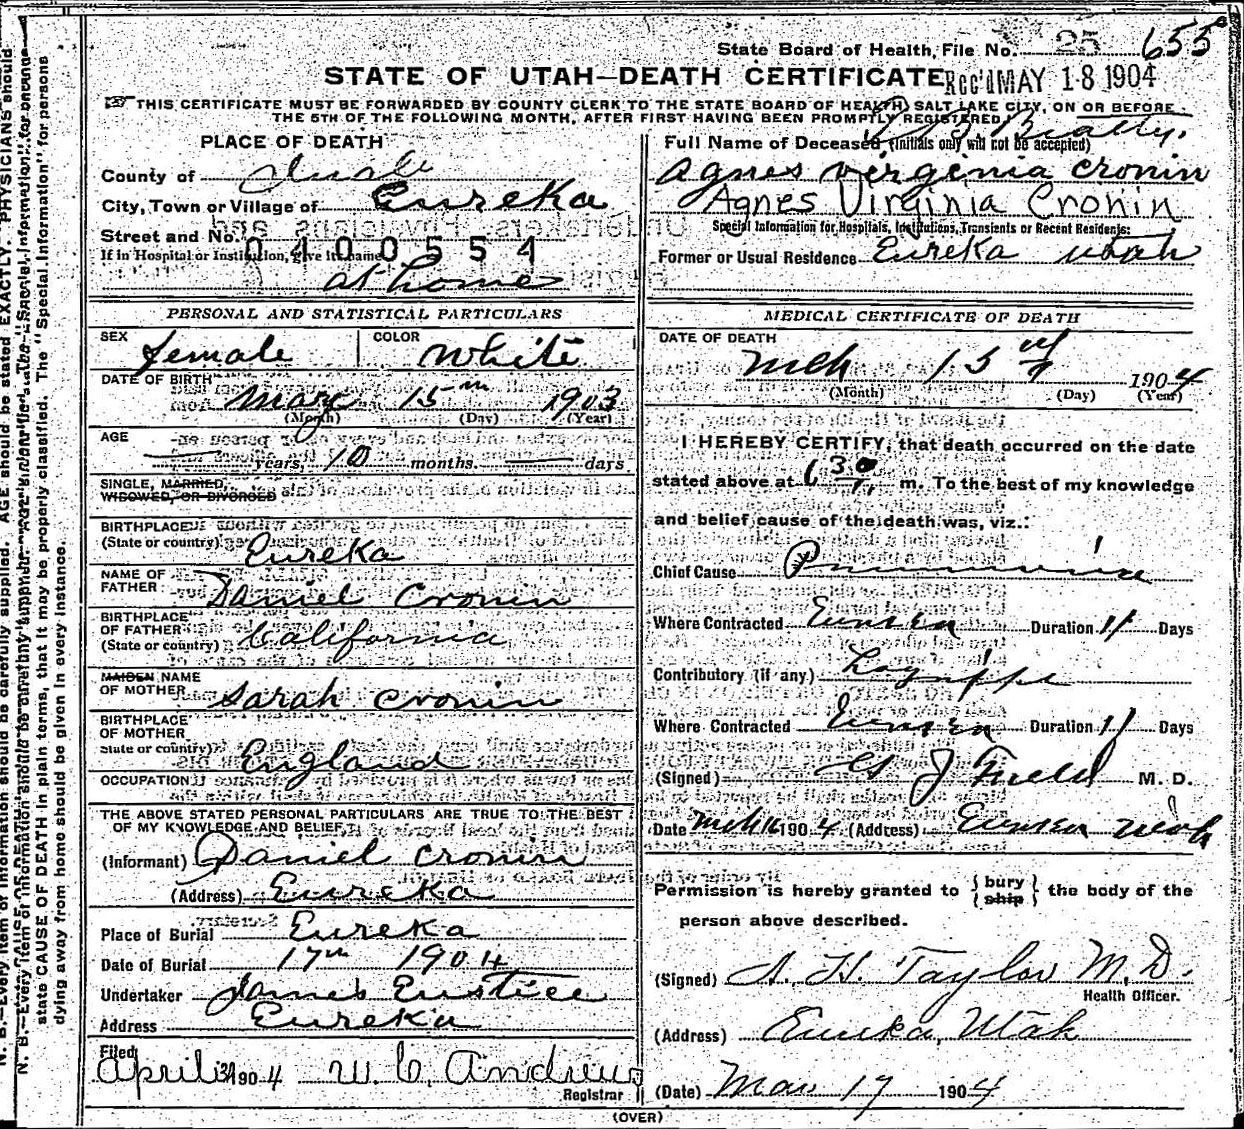 State Board of Health, File No. 25 655
STATE OF UTAH—DEATH CERTIFICATE
Rec'd MAY 18 1904
THIS CERTIFICATE MUST BE FORWARDED BY COUNTY CLERK TO THE STATE BOARD OF HEALTH, SALT LAKE CITY, ON OR BEFORE
THE 5TH OF THE FOLLOWING MONTH, AFTER FIRST HAVING BEEN PROMPTLY REGISTERED.
PLACE OF DEATH
County of Juab
City, Town or Village of Eureka
Street and No.
0400554
If in Hospital or Institution, give its name
at home
Full Name of Deceased (Initials only will not be accepted)
Agnes Virginia Cronin
Agnes Virginia Cronin
Special Information for Hospitals, Institutions, Transients or Recent Residents:
Former or Usual Residence Eureka Utah
PERSONAL AND STATISTICAL PARTICULARS
SEX female
COLOR White
DATE OF BIRTH May 15th 1903
(Month) (Day) (Year)
AGE
years, 10 months. days
SINGLE, MARRIED,
WIDOWED, OR DIVORCED
BIRTHPLACE
(State or country) Eureka
NAME OF
FATHER Daniel Cronin
BIRTHPLACE
OF FATHER
(State or country) California
MAIDEN NAME
OF MOTHER Sarah Cronin
BIRTHPLACE
OF MOTHER
State or country) England
OCCUPATION
THE ABOVE STATED PERSONAL PARTICULARS ARE TRUE TO THE BEST
OF MY KNOWLEDGE AND BELIEF.
(Informant) Daniel Cronin
(Address) Eureka
Place of Burial Eureka
Date of Burial 17th 1904
Undertaker James Eustice
Address Eureka
Filed
April 1904 W. C. Andrews
Registrar
MEDICAL CERTIFICATE OF DEATH
DATE OF DEATH
Mch 15 1904
(Month) (Day) (Year)
I HEREBY CERTIFY, that death occurred on the date
stated above at 6 30 m. To the best of my knowledge
and belief cause of the death was, viz.:
Chief Cause Pneumonia
Where Contracted Eureka Duration 11 Days
Contributory (if any) Lagrippe
Where Contracted Eureka Duration 11 Days
(Signed) J Field M. D.
Date Mch 16 1904 (Address) Eureka Utah
Permission is hereby granted to { bury ship } the body of the
person above described.
(Signed) A. H. Taylor M.D.
Health Officer.
(Address) Eureka, Utah
(Date) Mar 17 1904
(OVER)
N. B.—Every item of information should be carefully supplied. AGE should be stated EXACTLY. PHYSICIANS should
state CAUSE OF DEATH in plain terms, that it may be properly classified. The "Special Information" for persons
dying away from home should be given in every instance.